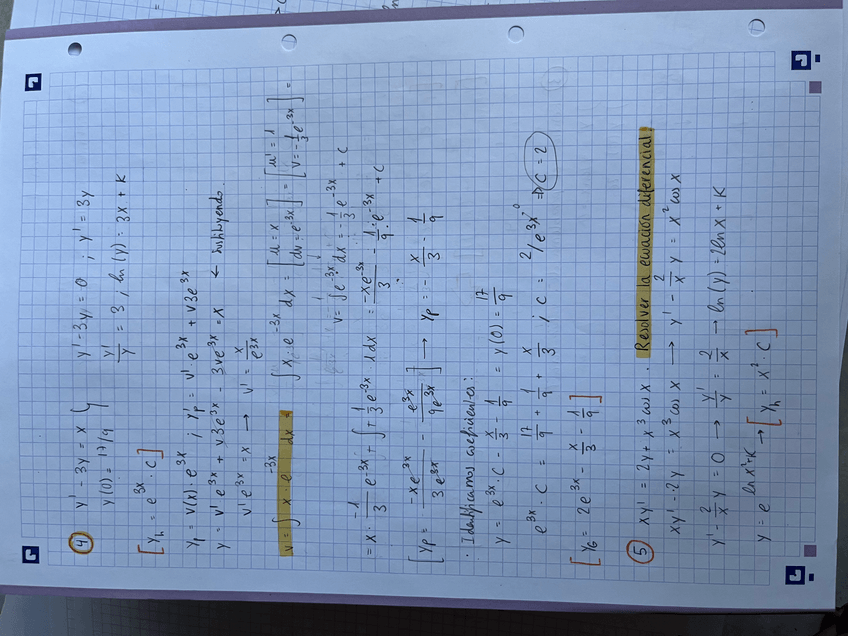 4 y' - 3y = x } y' - 3y = 0 ; y' = 3y
y(0) = 17/9 y'/y = 3 ; ln(y) = 3x + K
[ y_h = e^{3x} · C ]
y_p = v(x) · e^{3x} ; y_p' = v' · e^{3x} + v3e^{3x}
y = v' e^{3x} + v3e^{3x} - 3ve^{3x} = x ← sustituyendo.
v' e^{3x} = x → v' = x/e^{3x}
v = ∫ x · e^{-3x} dx = ∫ x · e^{-3x} dx = [ u = x dv = e^{-3x} ] = [ u' = 1 v = -1/3 e^{-3x} ] =
v = ∫ e^{-3x} dx = -1/3 e^{-3x} + C
= x · -1/3 e^{-3x} + ∫ + 1/3 e^{-3x} · 1 dx = -xe^{-3x}/3 - 1/9 · e^{-3x} + C
[ y_p = -xe^{3x}/3e^{3x} - e^{3x}/9e^{3x} ] → y_p = - x/3 - 1/9
· Identificamos coeficientes :
y = e^{3x} · C - x/3 - 1/9 = y(0) = 17/9
e^{3x} · C = 17/9 + 1/9 + x/3 ; C = 2/e^{3x} ⇒ C = 2
[ y_G = 2e^{3x} - x/3 - 1/9 ]
5 xy' = 2y + x³ cos x . Resolver la ecuación diferencial.
xy' - 2y = x³ cos x → y' - 2/x y = x² cos x
y' - 2/x y = 0 → y'/y = 2/x → ln(y) = 2ln x + K
y = e^{ln x² + K} → [ y_h = x² · C ]